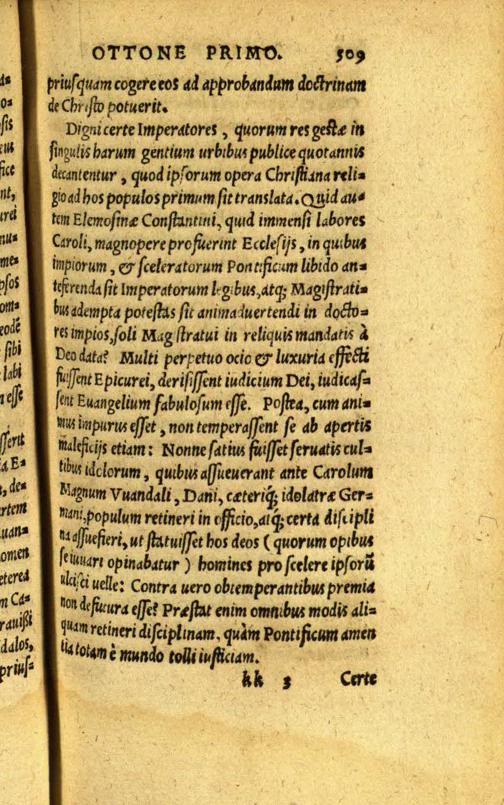 OTTONE PRIMO. 509
priusquam cogere eos ad approbandum doctrinam
de Christo potuerit.
Digni certe Imperatores, quorum res gestæ in
singulis harum gentium urbibus publice quotannis
decantentur, quod ipsorum opera Christiana reli-
gio ad hos populos primum sit translata. Quid au-
tem Elemosinæ Constantini, quid immensi labores
Caroli, magnopere profuerint Ecclesijs, in quibus
impiorum, & sceleratorum Pontificum libido an-
teferenda sit Imperatorum legibus, atq; Magistrati-
bus adempta potestas sit animaduertendi in docto-
res impios, soli Magistratui in reliquis mandatis à
Deo data? Multi perpetuo ocio & luxuria effecti
fuissent Epicurei, derisissent iudicium Dei, iudicas-
sent Euangelium fabulosum esse. Postea, cum ani-
mus impurus esset, non temperassent se ab apertis
maleficijs etiam: Nonne satius fuisset seruatis cul-
tibus idolorum, quibus assueuerant ante Carolum
Magnum Vuandali, Dani, cæteriq; idolatræ Ger-
mani, populum retineri in officio, atq; certa discipli
na assuefieri, ut statuisset hos deos (quorum opibus
se iuuari opinabatur) homines pro scelere ipsorũ
ulcisci uelle: Contra uero obtemperantibus premia
non defutura esse? Præstat enim omnibus modis ali-
quam retineri disciplinam, quàm Pontificum amen
tia totam è mundo tolli iusticiam.
kk 3 Certe